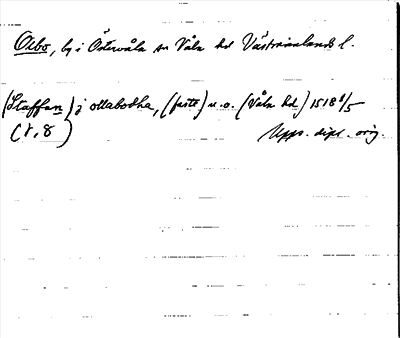 Ålbo, by i Östervåla sn Våla hd Västmanlands l.
(Staffan) j ottabodha, (faste) u.o. (Våla hd) 1518 1/5
(r, 8) Upps. dipl. orig.